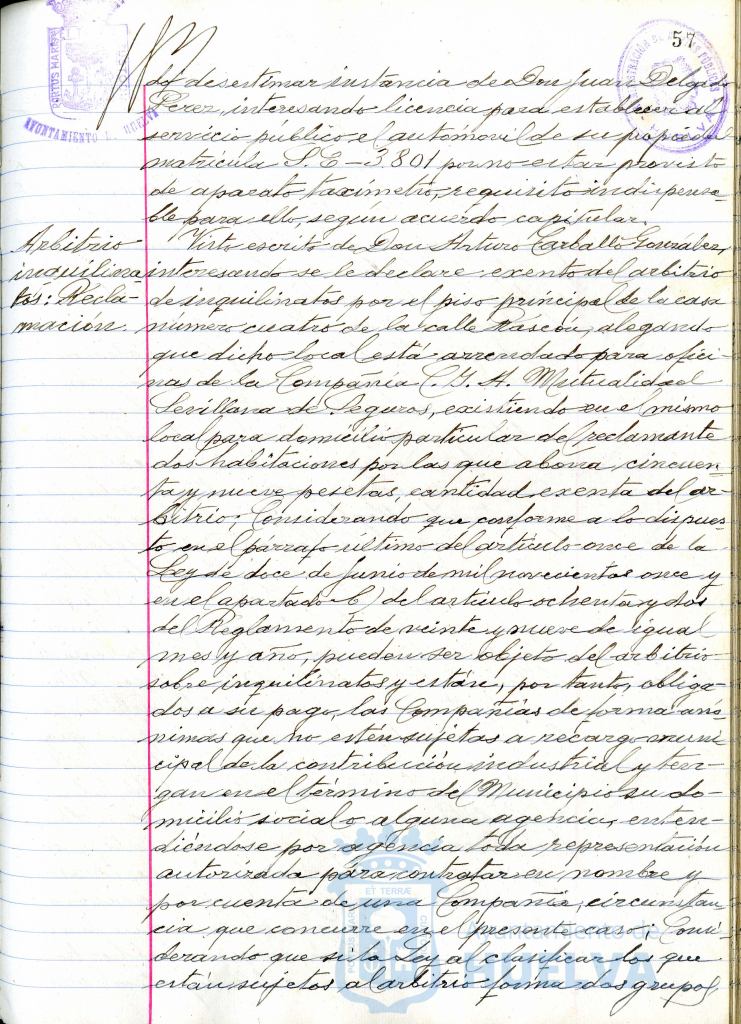 57
PORTUS MARIS
AYUNTAMIENTO HUELVA
desestimar instancia de Don Juan Delgado
Perez, interesando licencia para establecer al
servicio público el automóvil de su propiedad
matrícula S.E-3801 por no estar provisto
de aparato taxímetro, requisito indispensa-
ble para ello, según acuerdo capitular.
Arbitrio
inquilina-
tos: Recla-
mación.
Visto escrito de Don Arturo Carballo González,
interesando se le declare exento del arbitrio
de inquilinatos por el piso principal de la casa
número cuatro de la calle Rascon, alegando
que dicho local está arrendado para ofici-
nas de la Compañía C.G.A. Mutualidad
Sevillana de Seguros, existiendo en el mismo
local para domicilio particular del reclamante
dos habitaciones por las que abona cincuen-
ta y nueve pesetas, cantidad exenta del ar-
bitrio; Considerando que conforme a lo dispues-
to en el párrafo último del artículo once de la
Ley de doce de Junio de mil novecientos once y
en el apartado b) del artículo ochenta y dos
del Reglamento de veinte y nueve de igual
mes y año, pueden ser objeto del arbitrio
sobre inquilinatos y están, por tanto, obliga-
dos a su pago, las Compañías de forma anó-
nimas que no estén sujetas a recargo muni-
cipal de la contribución industrial y ten-
gan en el término del Municipio su do-
micilio social o alguna agencia, enten-
diéndose por agencia toda representación
autorizada para contratar en nombre y
por cuenta de una Compañía, circunstan-
cia que concurre en el presente caso; Consi-
derando que si la Ley al clasificar los que
están sujetos al arbitrio forma dos grupos,
ET TERRÆ
PORTUS MARIS
Ayuntamiento de
HUELVA